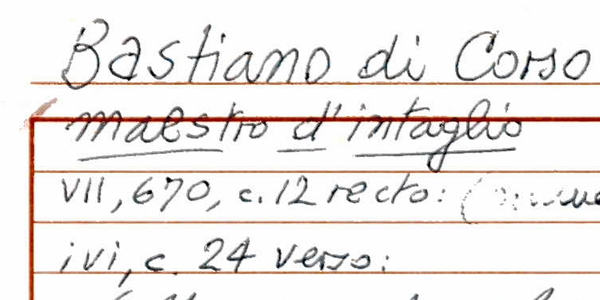 Bastiano di Corso
maestro d'intaglio
VII, 670, c. 12 recto:
ivi, c. 24 verso: